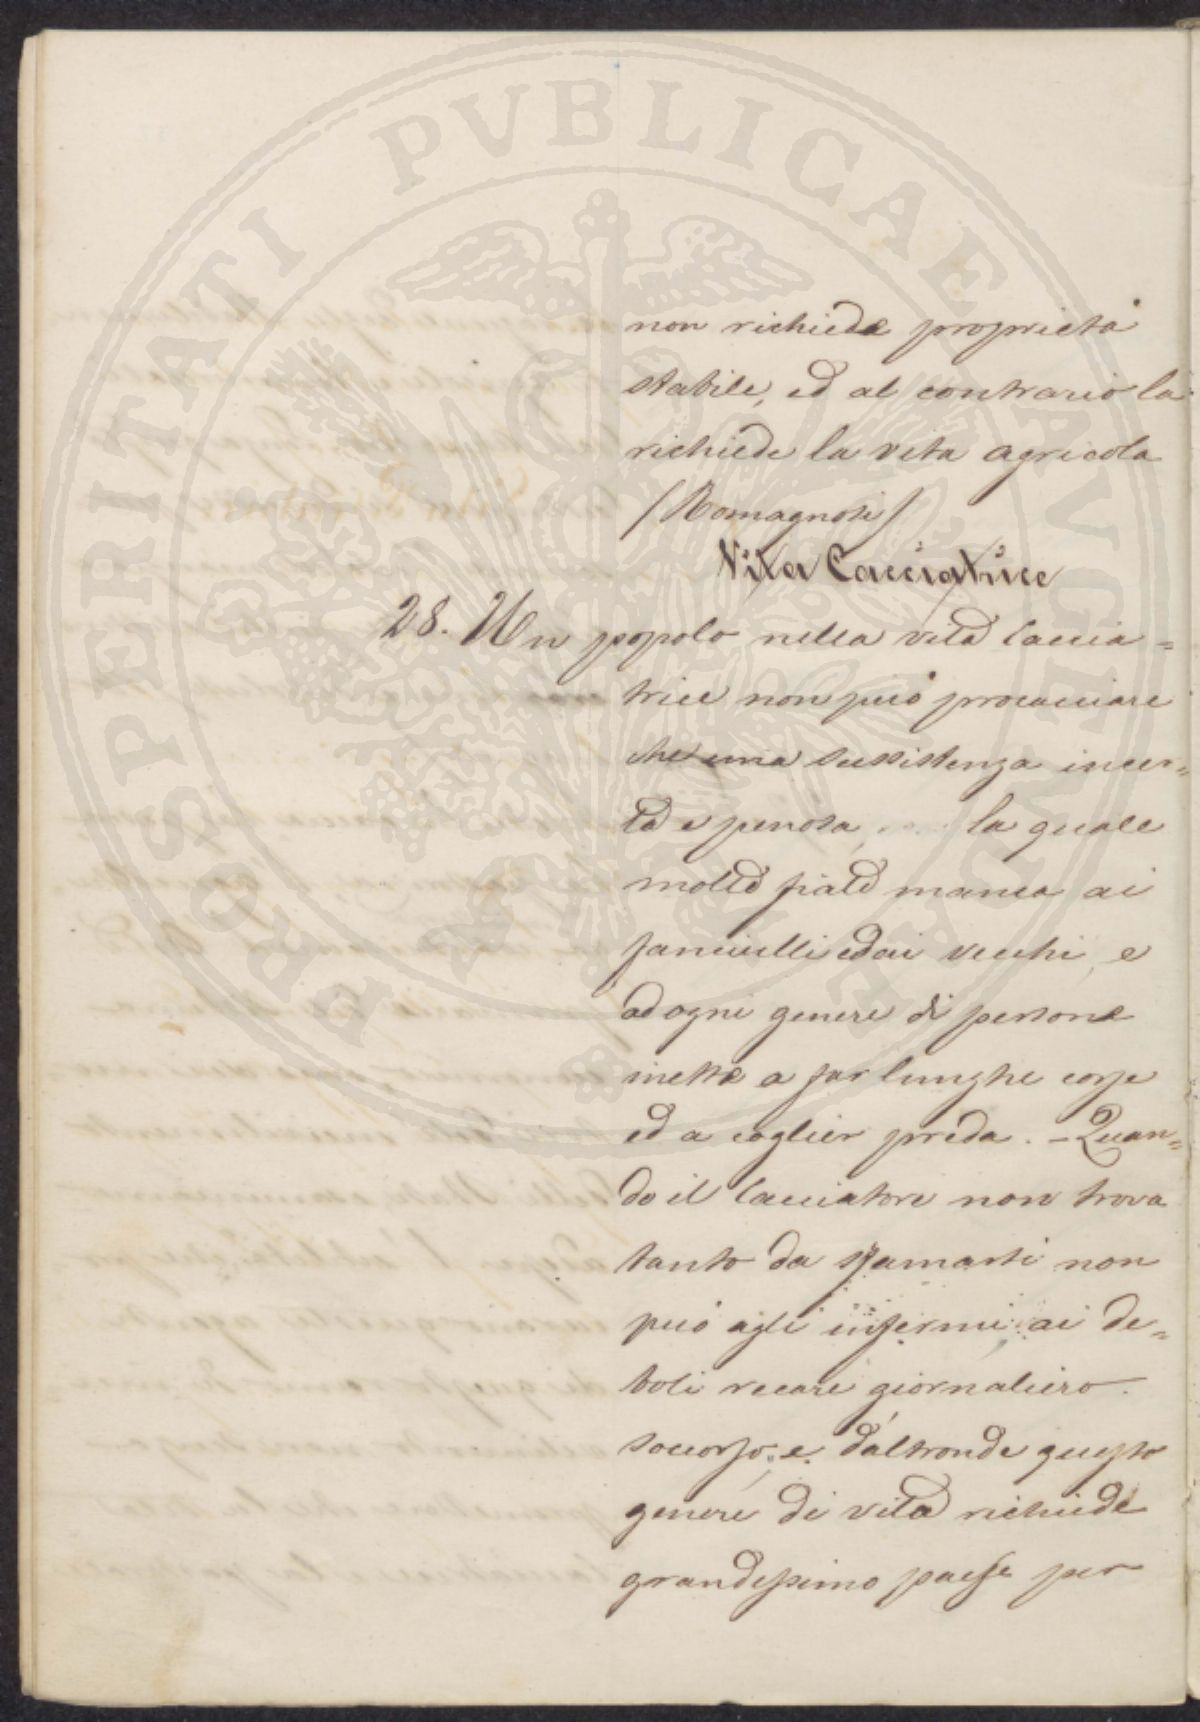 PROSPERITATI PVBLICAE AVGENDAE
non richiede proprietà
stabile, ed al contrario la
richiede la vita agricola
/Romagnosi/
Vita Cacciatrice
28. Un popolo nella vita caccia=
trice non può procacciare
che una sussistenza incer=
ta e penosa, la quale
molte fiate manca ai
fanciulli ed ai vecchi, e
ad ogni genere di persone
inette a far lunghe corse
ed a coglier preda. – Quan=
do il Cacciatore non trova
tanto da sfamarsi non
può agli infermi, ai de=
boli recare giornaliero
soccorso, e d'altronde questo
genere di vita richiede
grandissimo paese per